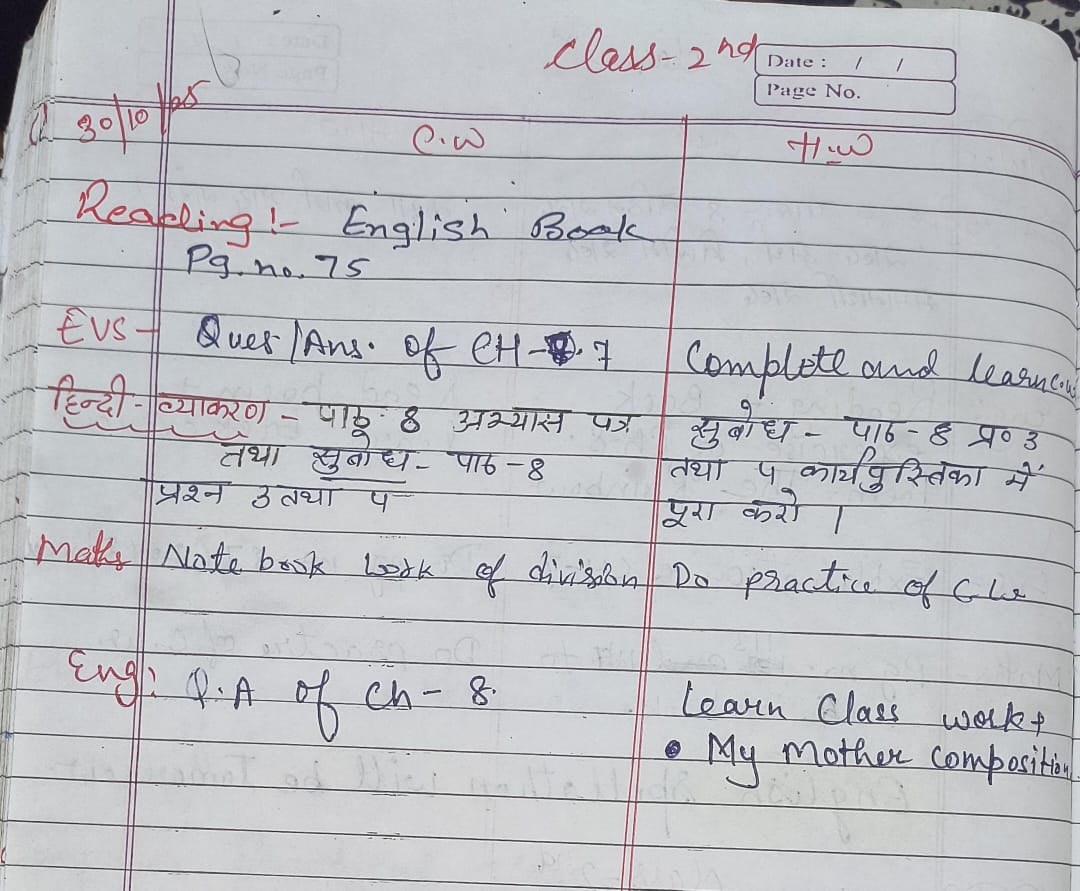 Class- 2nd
Date : / /
Page No.
30/10/25
C.W
H.W
Reading :- English Book
Pg. no. 75
EVS - Ques/Ans. of CH- 7
Complete and learn c.w
हिन्दी - व्याकरण - पाठ 8 अभ्यास पत्र
तथा सुबोध - पाठ - 8
प्रश्न 3 तथा ५
सुबोध - पाठ - 8 प्र० 3
तथा ५ कार्यपुस्तिका में
पूरा करो ।
Maths Note book work of division
Do practice of C.W
Eng: Q.A of Ch - 8.
Learn Class work +
• My mother composition